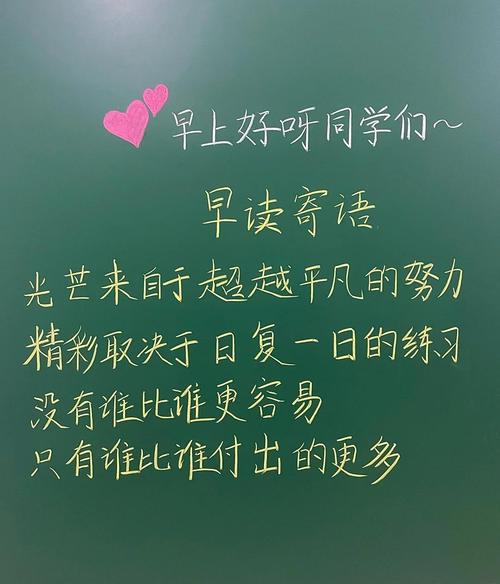 早上好呀同学们~
早读寄语
光芒来自于超越平凡的努力
精彩取决于日复一日的练习
没有谁比谁更容易
只有谁比谁付出的更多